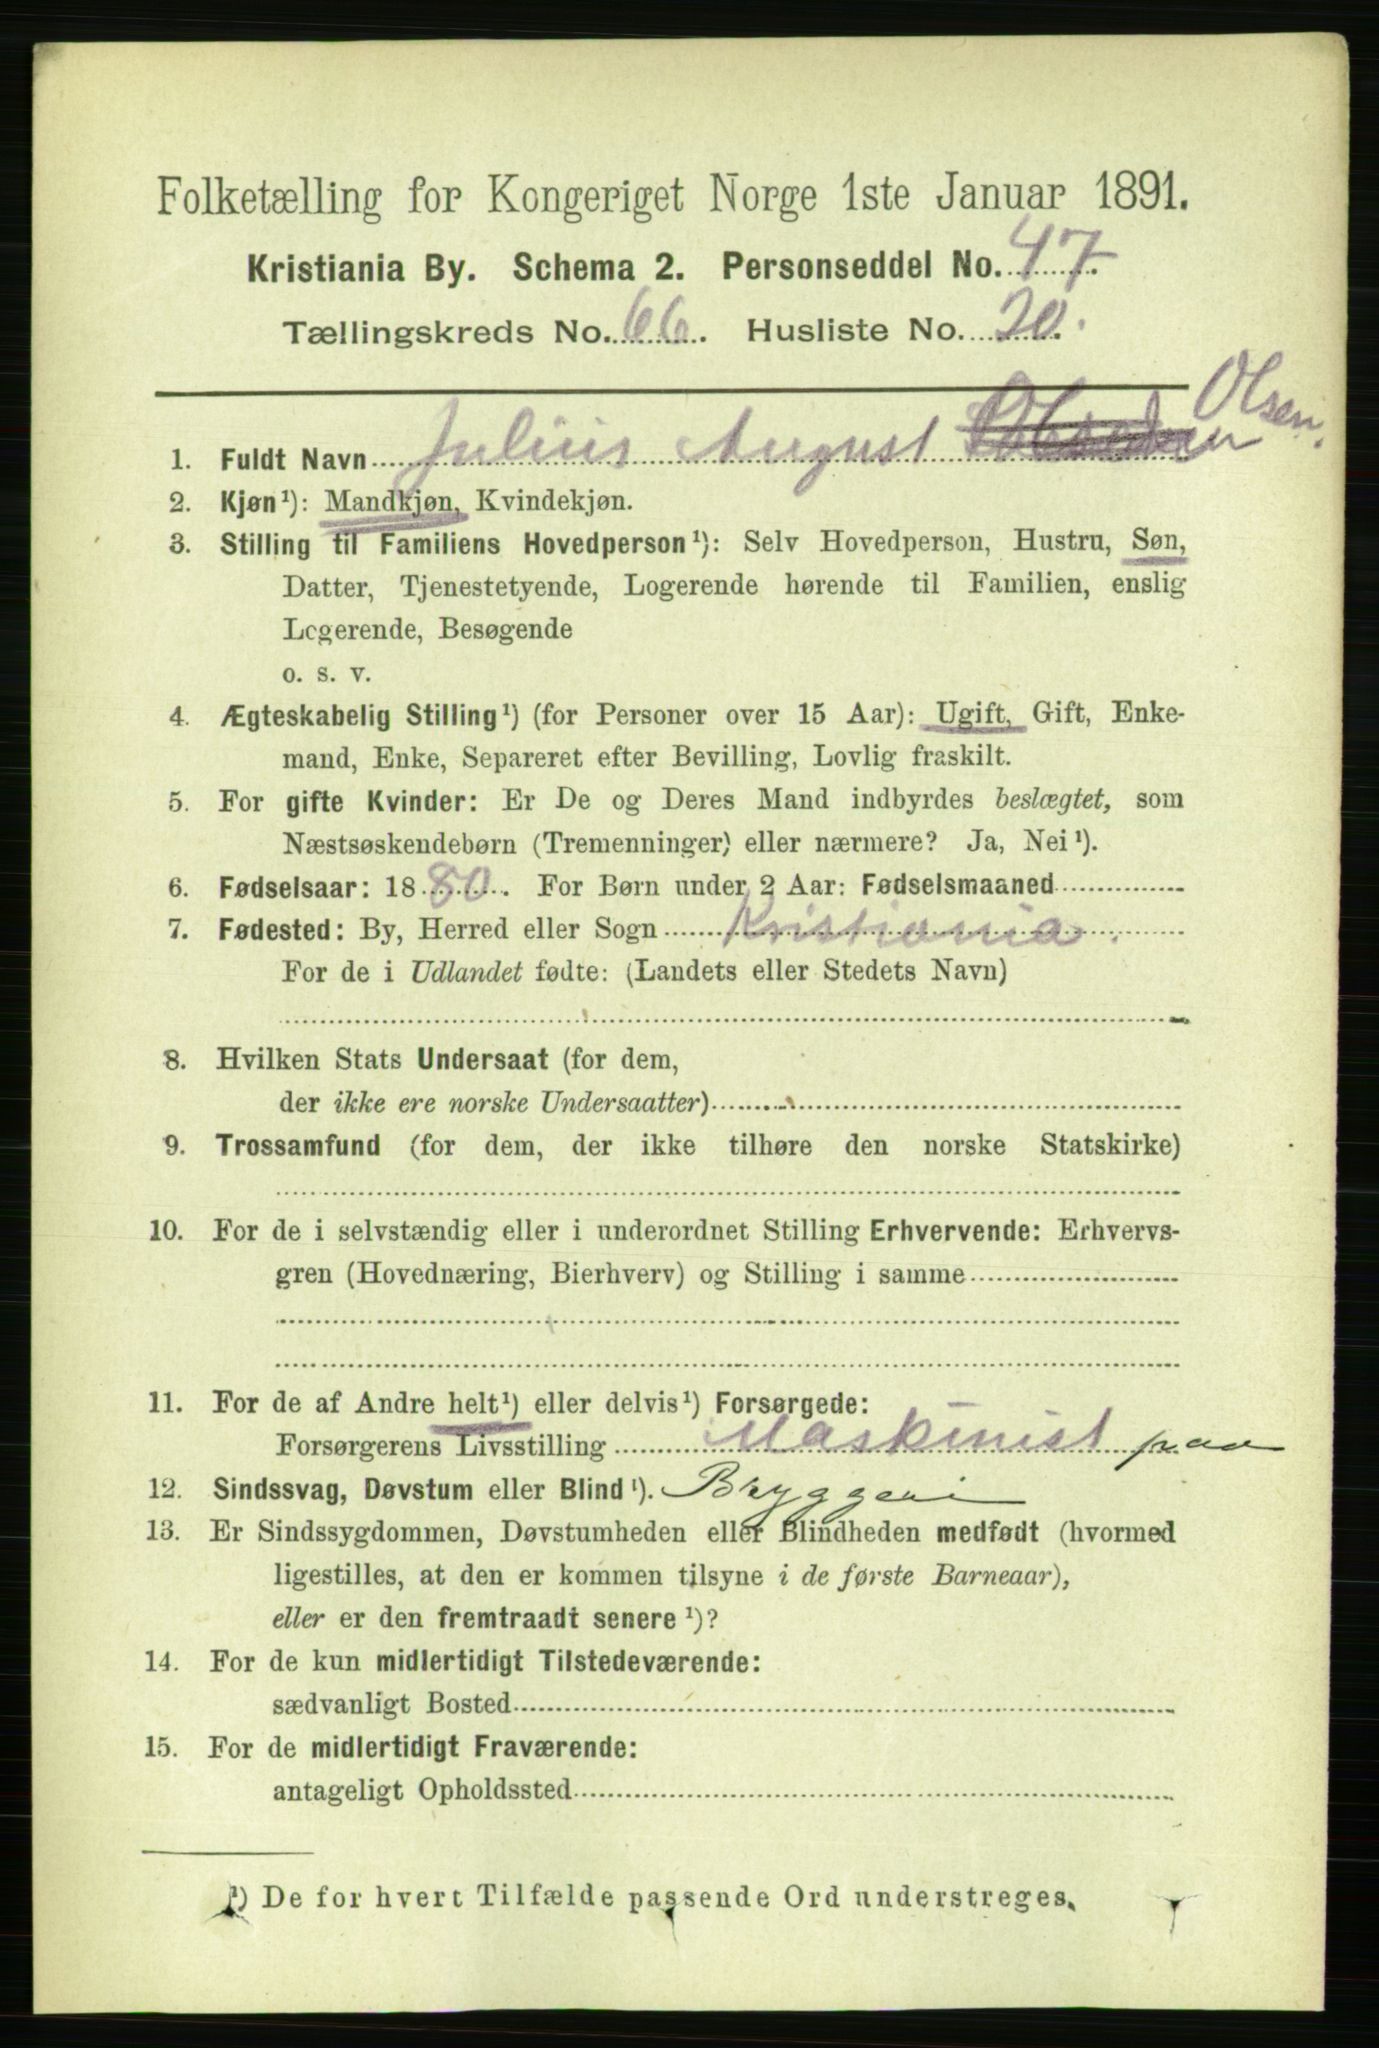 Folketælling for Kongeriget Norge 1ste Januar 1891.
Kristiania By. Schema 2. Personseddel No. 47.
Tællingskreds No. 66. Husliste No. 20.
1. Fuldt Navn Julius August Olsen.
2. Kjøn¹): Mandkjøn, Kvindekjøn.
3. Stilling til Familiens Hovedperson¹): Selv Hovedperson, Hustru, Søn,
Datter, Tjenestetyende, Logerende hørende til Familien, enslig
Logerende, Besøgende
o. s. v.
4. Ægteskabelig Stilling¹) (for Personer over 15 Aar): Ugift, Gift, Enke-
mand, Enke, Separeret efter Bevilling, Lovlig fraskilt.
5. For gifte Kvinder: Er De og Deres Mand indbyrdes beslægtet, som
Næstsøskendebørn (Tremenninger) eller nærmere? Ja, Nei¹).
6. Fødselsaar: 1880. For Børn under 2 Aar: Fødselsmaaned
7. Fødested: By, Herred eller Sogn Kristiania.
For de i Udlandet fødte: (Landets eller Stedets Navn)
8. Hvilken Stats Undersaat (for dem,
der ikke ere norske Undersaatter)
9. Trossamfund (for dem, der ikke tilhøre den norske Statskirke)
10. For de i selvstændig eller i underordnet Stilling Erhvervende: Erhvervs-
gren (Hovednæring, Bierhverv) og Stilling i samme
11. For de af Andre helt¹) eller delvis¹) Forsørgede:
Forsørgerens Livsstilling Maskinist paa
12. Sindssvag, Døvstum eller Blind¹). Bryggeri
13. Er Sindssygdommen, Døvstumheden eller Blindheden medfødt (hvormed
ligestilles, at den er kommen tilsyne i de første Barneaar),
eller er den fremtraadt senere¹)?
14. For de kun midlertidigt Tilstedeværende:
sædvanligt Bosted
15. For de midlertidigt Fraværende:
antageligt Opholdssted
¹) De for hvert Tilfælde passende Ord understreges.